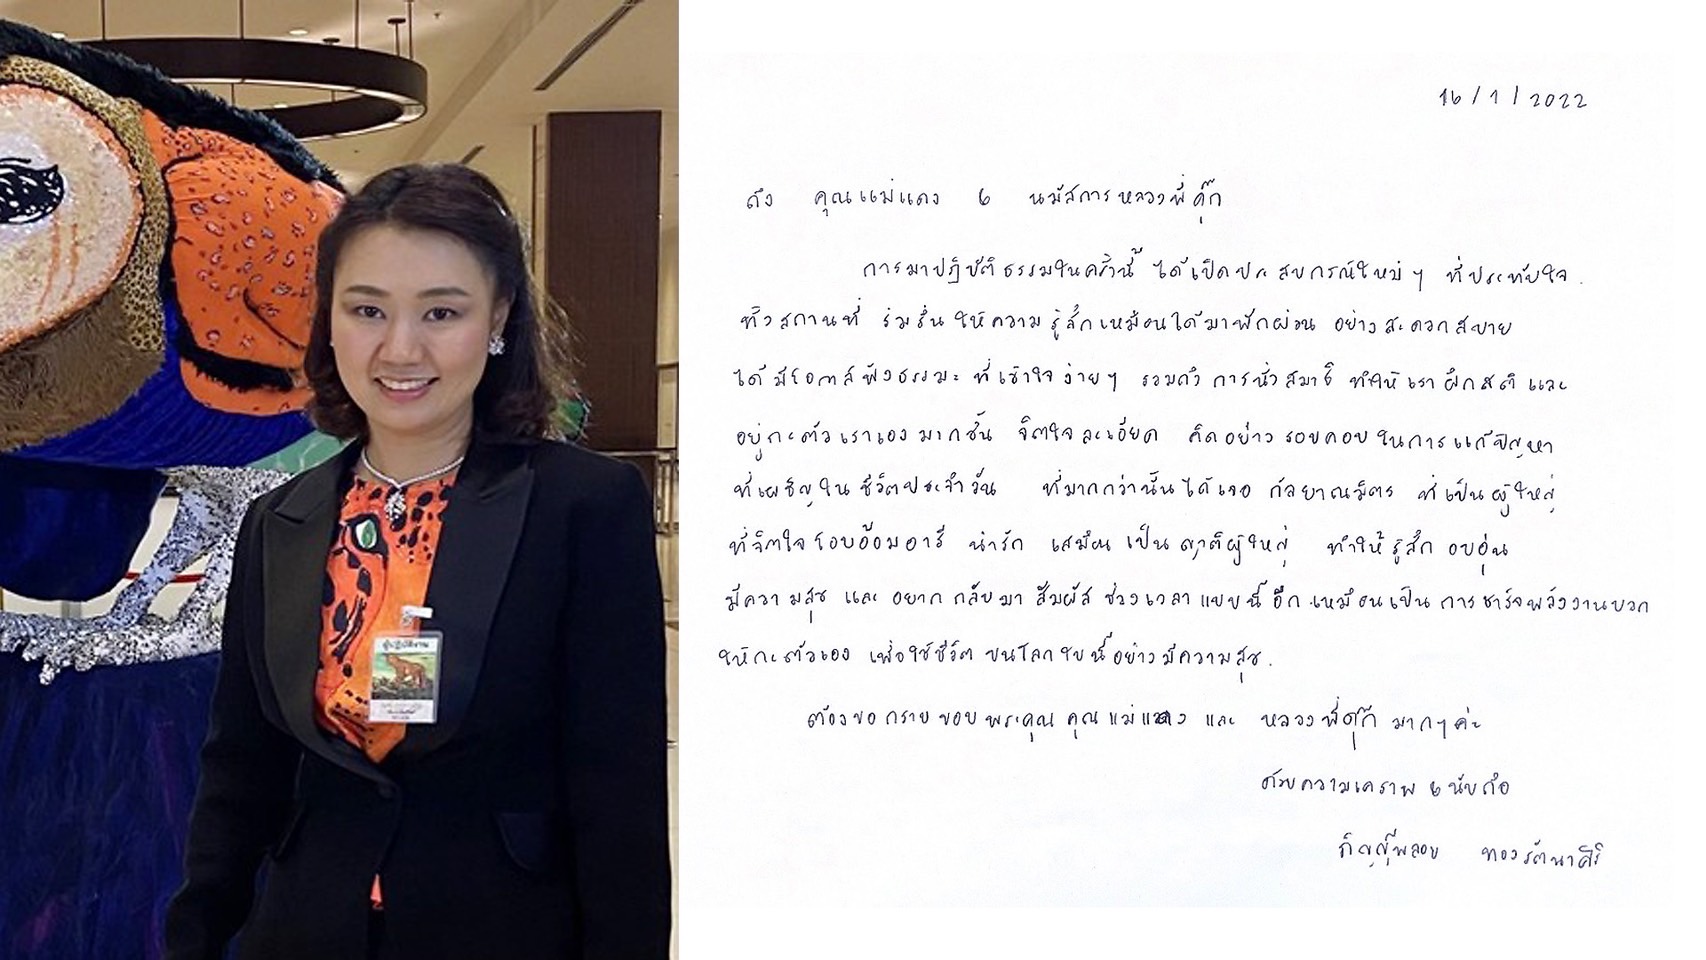 ผู้ปฏิบัติงาน
16/1/2022
ถึง คุณแม่แดง & นมัสการหลวงพี่ตุ๊ก
การมาปฏิบัติธรรมในครั้งนี้ ได้เปิดประสบการณ์ใหม่ๆ ที่ประทับใจ.
ทั้งสถานที่ ร่มรื่น ให้ความรู้สึกเหมือนได้มาพักผ่อน อย่างสะดวกสบาย
ได้มีโอกาสฟังธรรมะ ที่เข้าใจง่ายๆ รวมถึง การนั่งสมาธิ ทำให้เราฝึกสติ และ
อยู่กะตัวเราเองมากขึ้น จิตใจละเอียด คิดอย่างรอบคอบในการแก้ปัญหา
ที่เผชิญในชีวิตประจำวัน ที่มากกว่านั้นได้เจอ กัลยาณมิตร ที่เป็นผู้ใหญ่
ที่จิตใจโอบอ้อมอารี น่ารัก เสมือนเป็นญาติผู้ใหญ่ ทำให้รู้สึก อบอุ่น
มีความสุข และ อยากกลับมา สัมผัส ช่วงเวลาแบบนี้อีก เหมือนเป็นการชาร์จพลังงานบวก
ให้กะตัวเอง เพื่อใช้ชีวิต บนโลกใบนี้อย่างมีความสุข.
ต้องขอกราบขอบพระคุณ คุณแม่แดง และ หลวงพี่ตุ๊ก มากๆค่ะ
ด้วยความเคารพ & นับถือ
ภิญญ์พลอย ทองรัตนาศิริ